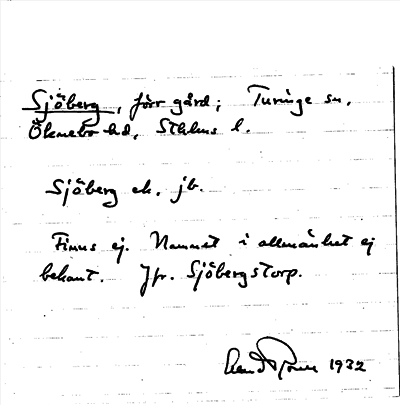 Sjöberg, förr gård; Turinge sn.
Öknebo hd, Sthlms l.
Sjöberg ek. jb.
Finns ej. Namnet i allmänhet ej
bekant. Jfr. Sjöbergstorp.
1932